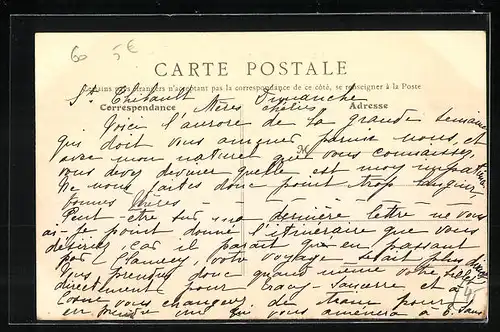 60 5€
CARTE POSTALE
Certains pays étrangers n'acceptant pas la correspondance de ce côté, se renseigner à la Poste
Correspondance Adresse
M
St Thibault Dimanche
Mères chéries
Voici l'aurore de la grande semaine
qui doit vous amener parmi nous, et
avec mon naturel que vous connaissez,
vous devez deviner quelle est mon impatience
Ne nous faites donc point trop languir,
bonnes Mères -
Peut-être sur ma dernière lettre ne vous
ai-je point donné l'itinéraire que vous
désiriez, car il paraît qu'en passant
par Clamecy, votre voyage serait plus
Vous prendrez donc quand même votre billet
directement pour Sancerre et à
Cosne vous changerez de train pour
en prendre un qui vous amènera à